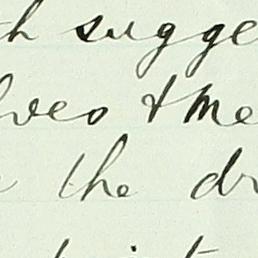 h sugge
lves & me
the dr